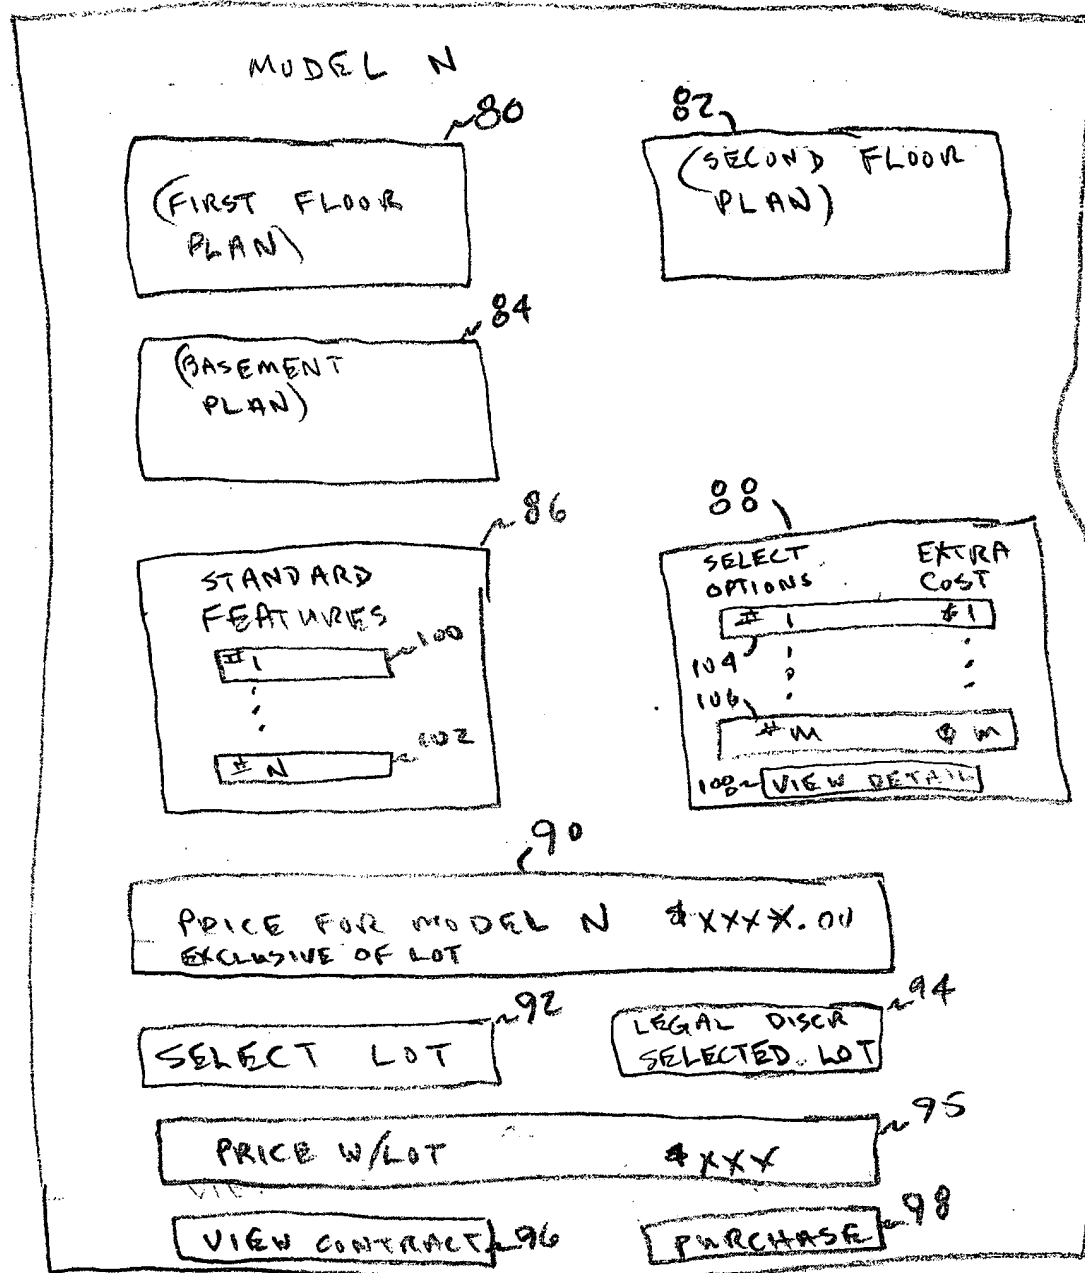 MODEL N
80
82
(FIRST FLOOR
PLAN)
(SECOND FLOOR
PLAN)
84
(BASEMENT
PLAN)
86
88
STANDARD
FEATURES
#1
100
#N
102
SELECT
OPTIONS
EXTRA
COST
#1 $1
104
106
#m $m
108 VIEW DETAIL
90
PRICE FOR MODEL N $XXXX.00
EXCLUSIVE OF LOT
92
94
SELECT LOT
LEGAL DISCR
SELECTED LOT
95
PRICE W/LOT $XXX
VIEW CONTRACT 96
PURCHASE 98